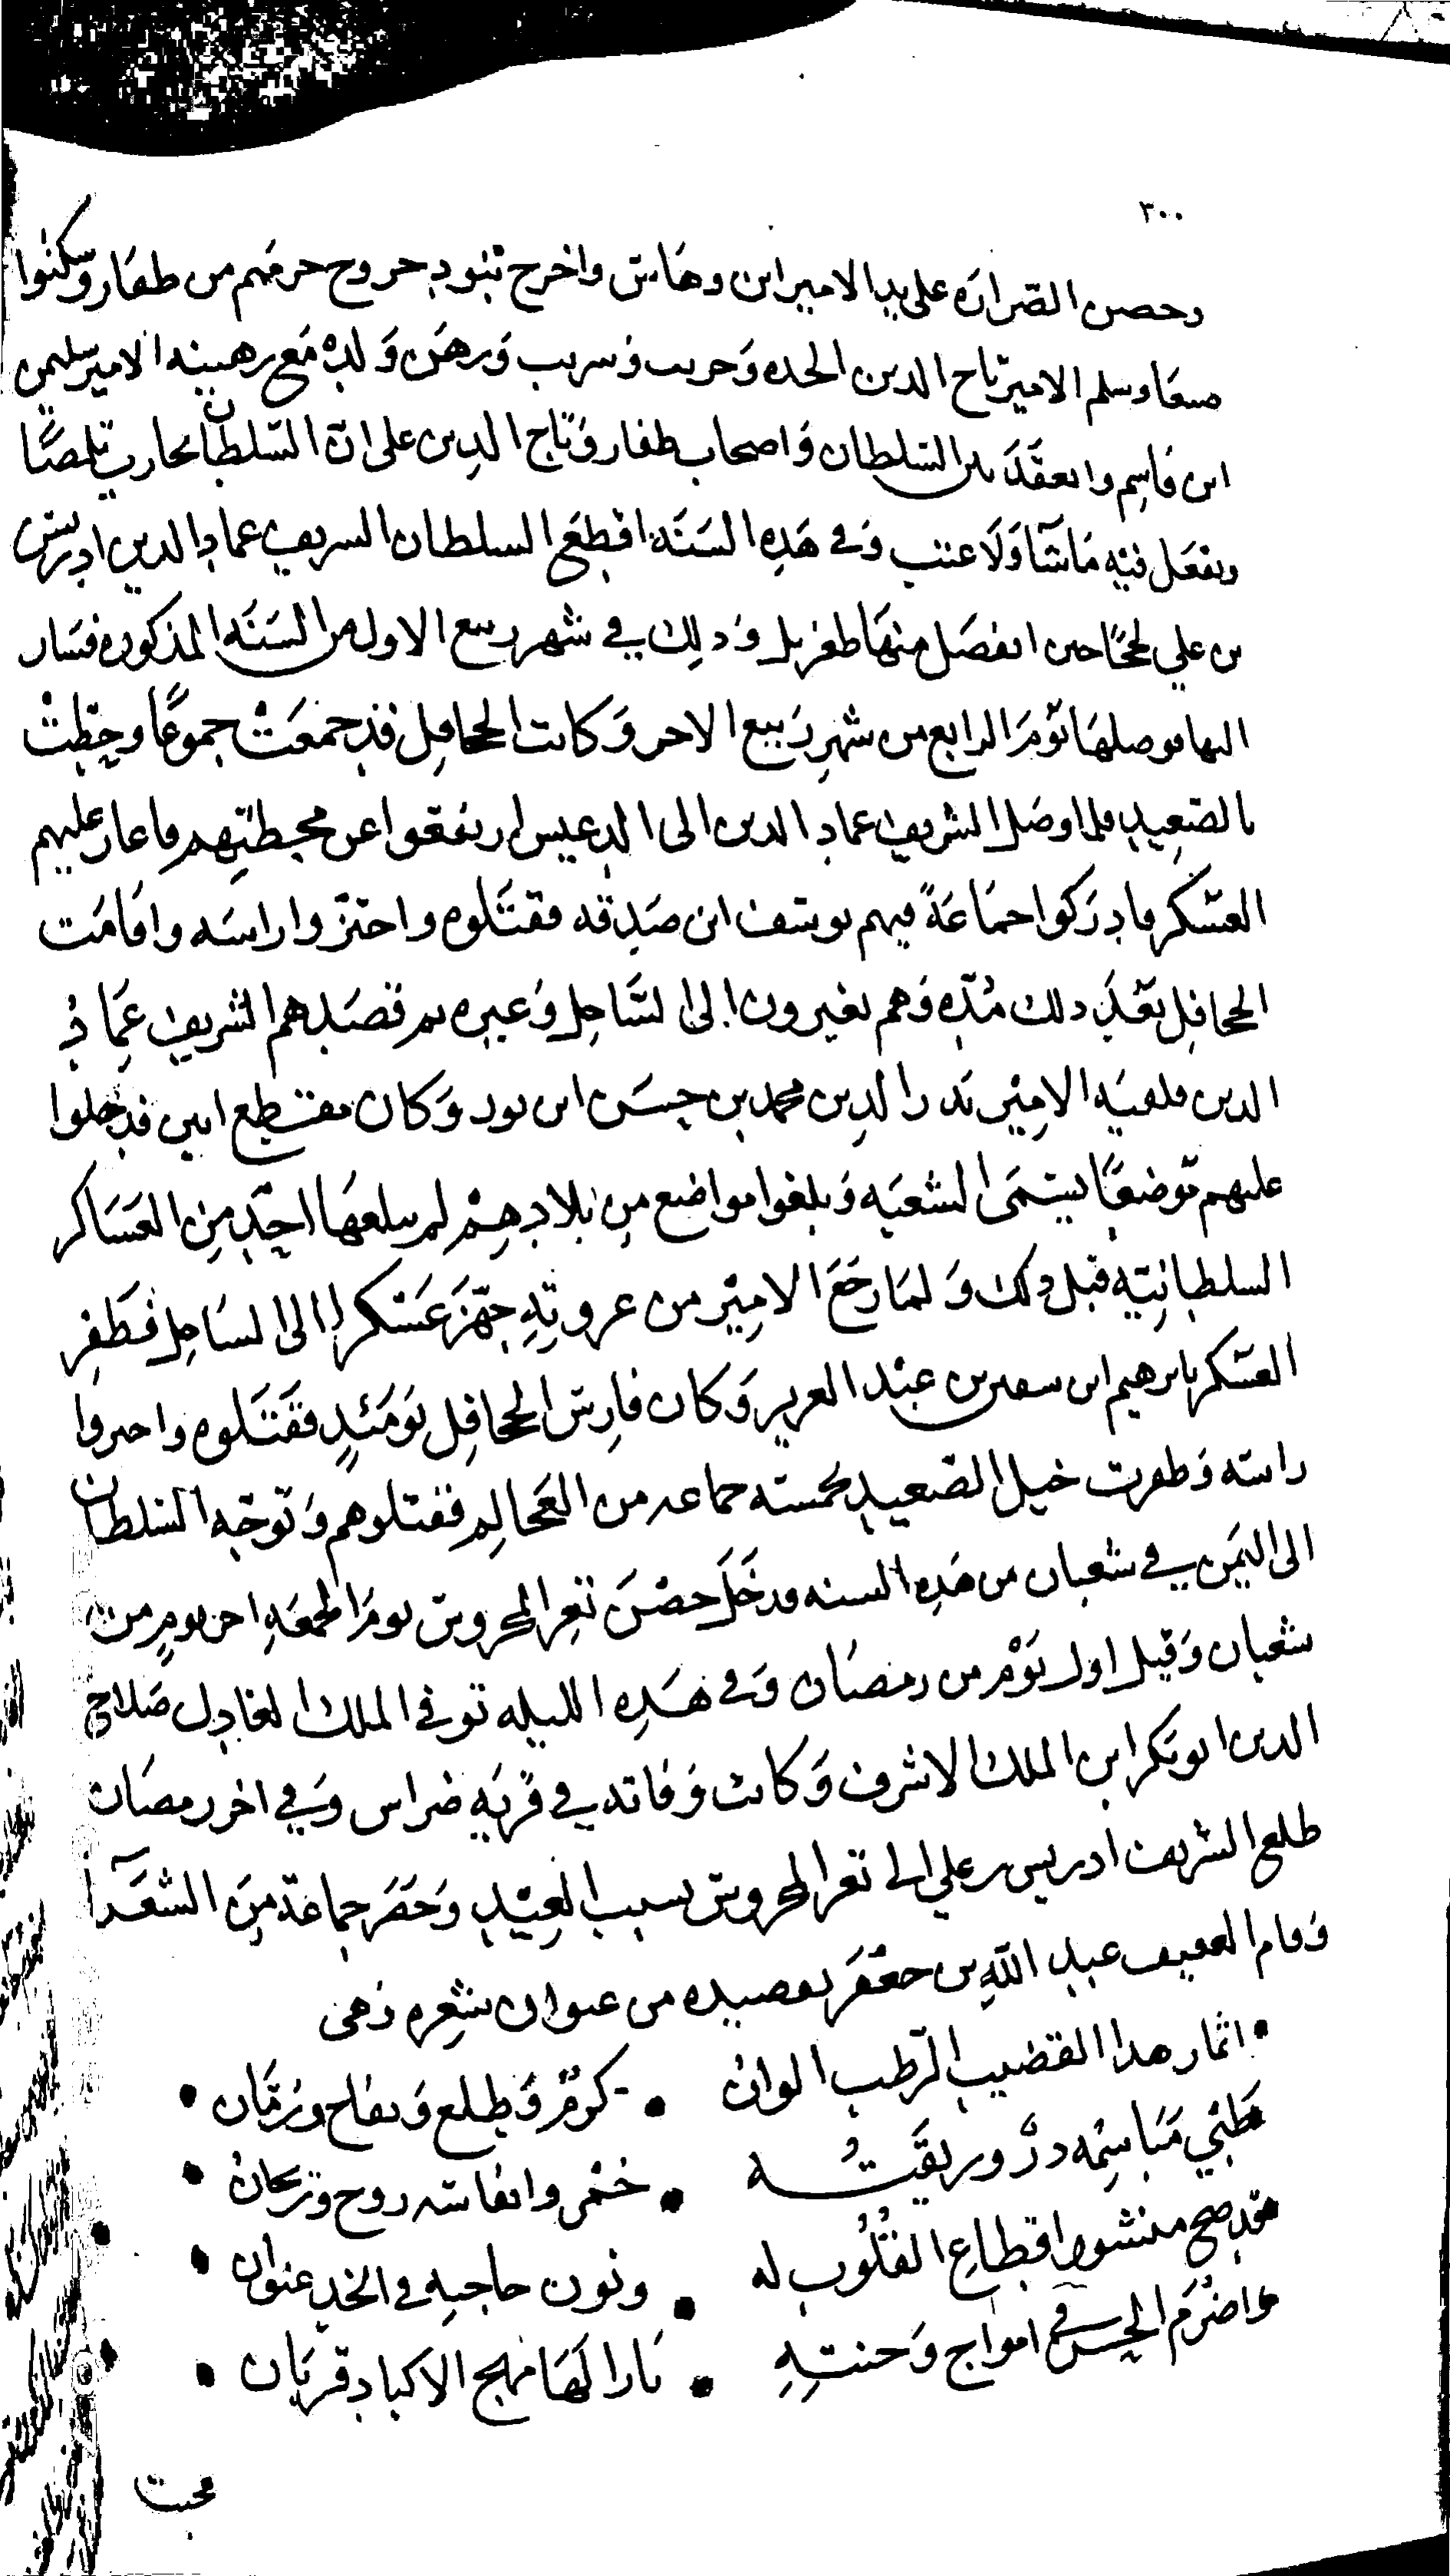 ٣٠٠
وحصن القرانه على يد الامير ابن وهاس واخرج تبنود خروج حرمهم من ظفار وسكنوا
صنعا وسلم الامير تاج الدين الحده وحريب ورهن ولده مع رهينه الامير سليمن
ابن قاسم وانعقد بين السلطان واصحاب ظفار وتاج الدين على ان السلطان يحارب تلمصا
ويفعل فيه ماشا ولا عتب وفي هذه السنه اقطع السلطان الشريف عماد الدين ادريس
بن علي لحجا حين انفصل منها طغريل وذلك في شهر ربيع الاول من السنه المذكوره فسار
اليها فوصلها يوم الرابع من شهر ربيع الاخر وكانت الجحافل قد جمعت جموعا وحطت
بالصعيد فلما وصل الشريف عماد الدين الى الدعيس ارتفعوا عن محطتهم فاغار عليهم
العسكر فادركوا جماعة فيهم يوسف ابن صدقه فقتلوه واحتزوا راسه واقامت
الجحافل بعد ذلك مده وهم يغيرون الى الساحل وغيره ثم قصدهم الشريف عماد
الدين فلقيه الامير بدر الدين محمد بن حسن ابن نور وكان مقتطع ابين فدخلوا
عليهم موضعا يسمى الشعبه وبلغوا مواضع من بلادهم لم يبلغها احد من العساكر
السلطانيه قبل ذلك ولما رجع الامير من غروته جهز عسكرا الى الساحل فظفر
العسكر بابرهيم ابن سفين بن عبد العزيز وكان فارس الجحافل يومئذ فقتلوه واحتزوا
راسه وظفرت خيل الصعيد بخمسه جماعه من العجالم فقتلوهم وتوجه السلطان
الى اليمن في شعبان من هذه السنه فدخل حصن تعز المحروس يوم الجمعه اخر يوم من
شعبان وقيل اول يوم من رمضان وفي هذه الليله توفي الملك العادل صلاح
الدين ابو بكر ابن الملك الاشرف وكانت وفاته في قريه ضراس وفي اخر رمضان
طلع الشريف ادريس بن علي الى تعز المحروس بسبب العيد وحضر جماعة من الشعرا
وقام العفيف عبد الله بن جعفر بقصيده من عنوان شعره وهي
اثمار هذا القضيب الرطب الوان • كرم وطلع وتفاح ورمان •
ظبي مباسمه در وريقته • خمر وانفاسه روح وريحان •
قد صح منشور اقطاع القلوب له • ونون حاجبه في الخد عنوان •
واضرم الحسن في امواج وجنته • نارا لها مهج الاكباد قربان •
محبت